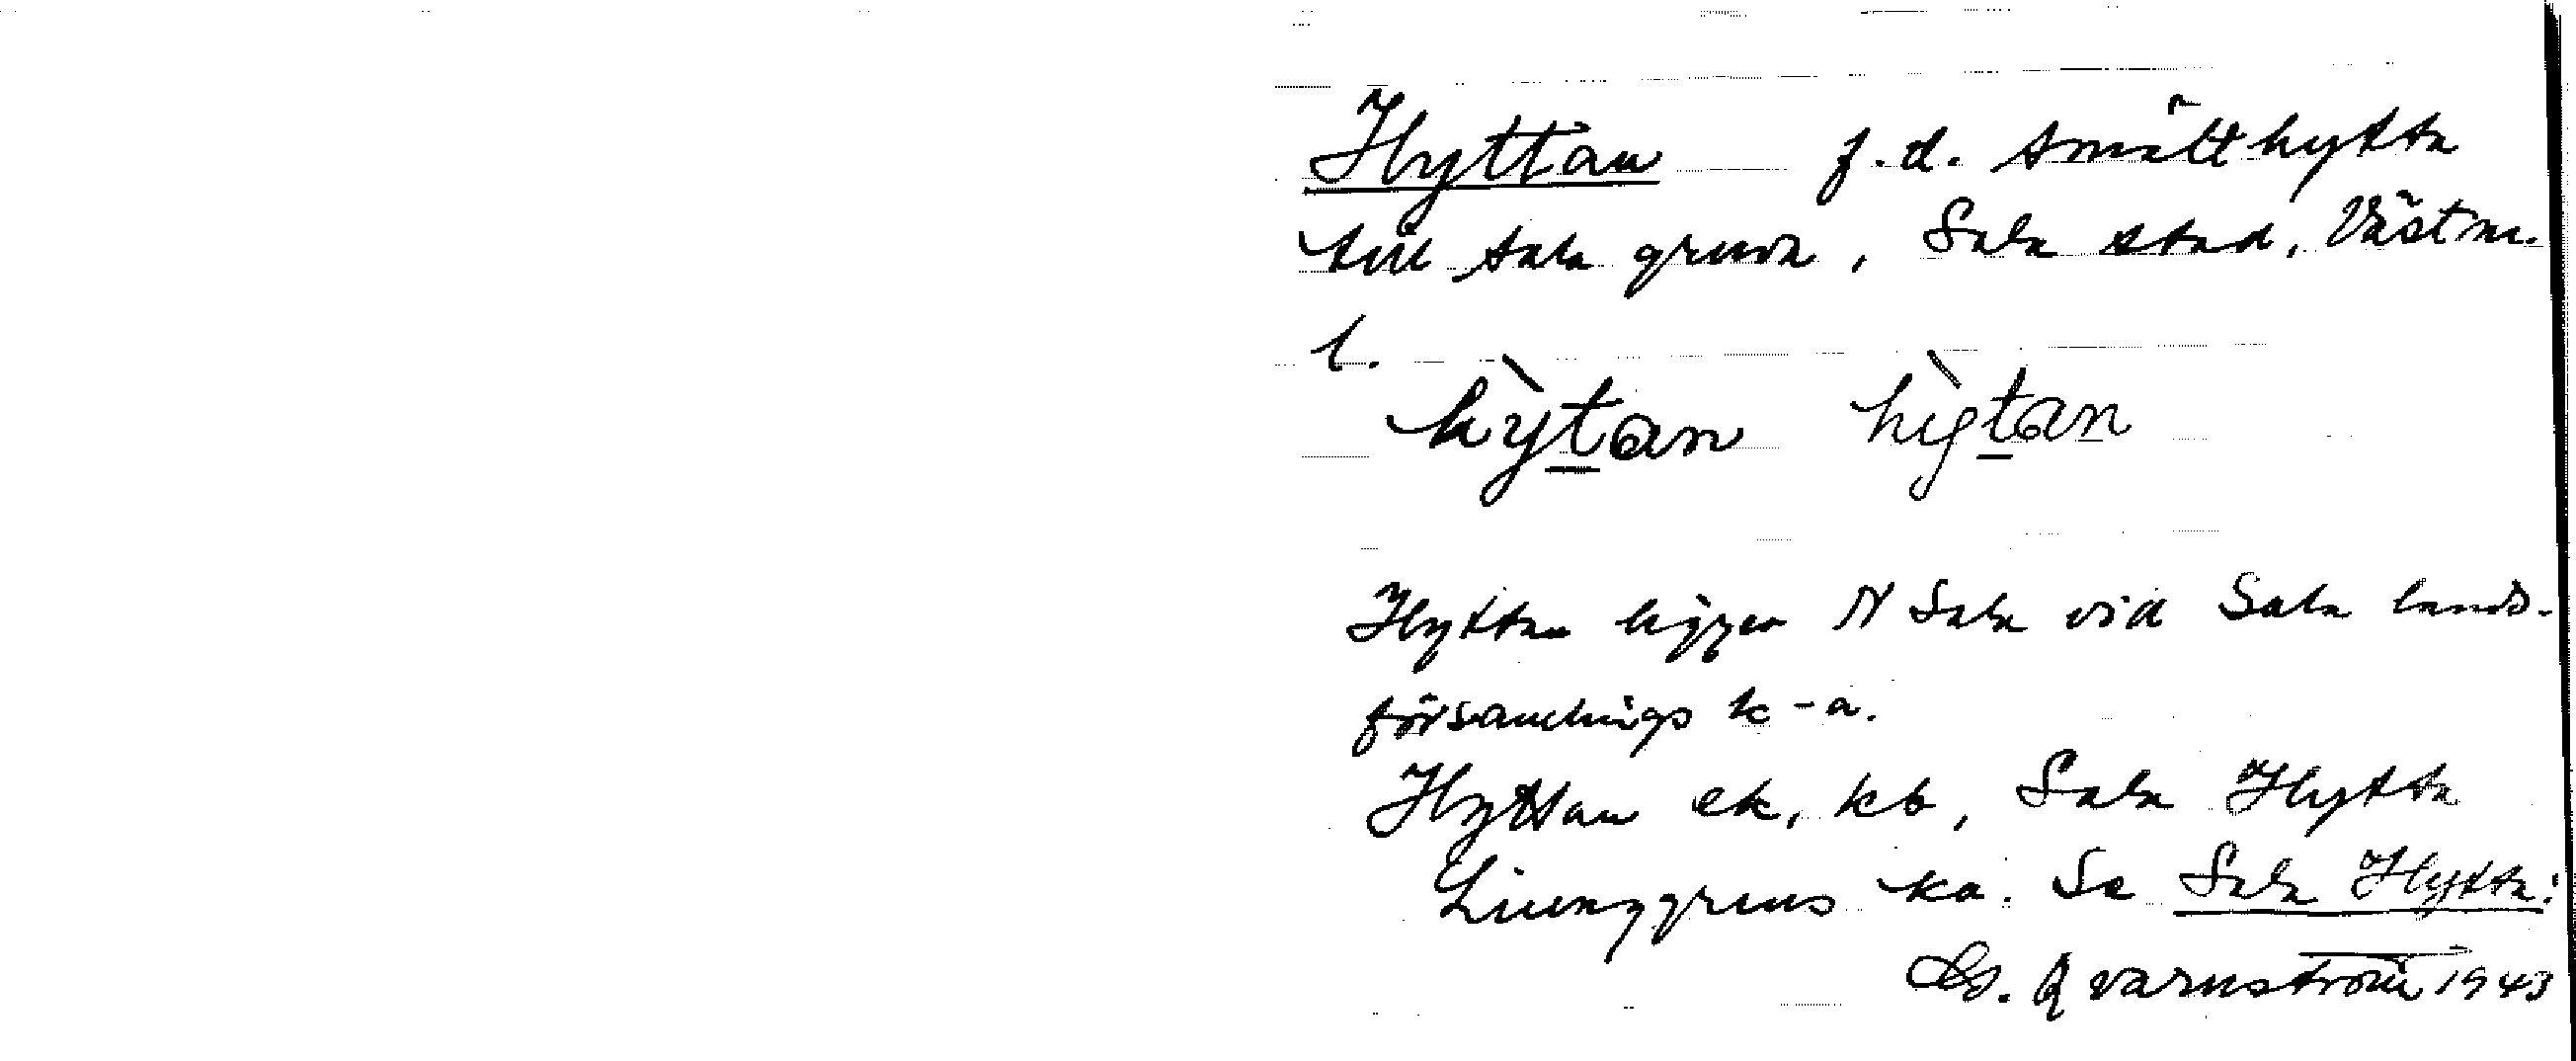 Hyttan f.d. smälthytta
till Sala gruva, Sala stad, Västm.
l.
hy̠tan hy̠tan
Hyttan ligger N Sala vid Sala lands-
församlings k-a.
Hyttan ek, kb, Sala Hytta
Ljunggrens ka. Se Sala Hytta!
G. Qvarnström 1943